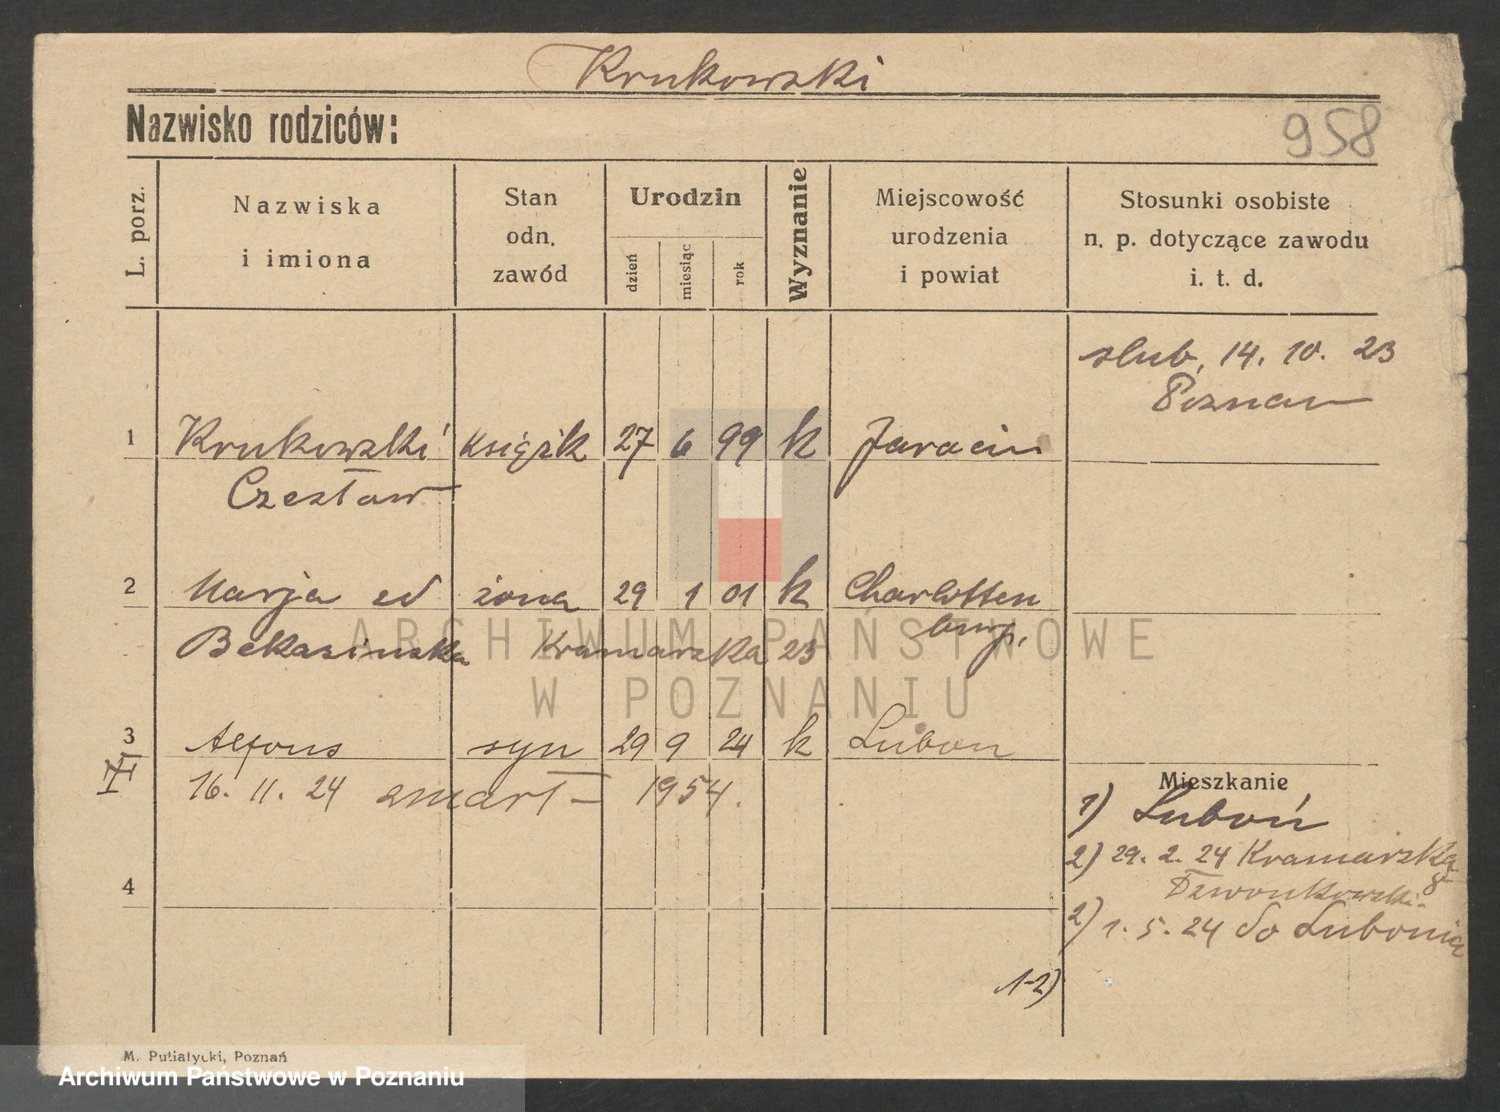 Krukowski
Nazwisko rodziców:
958
L. porz.
Nazwiska
i imiona
Stan
odn.
zawód
Urodzin
dzień
miesiąc
rok
Wyznanie
Miejscowość
urodzenia
i powiat
Stosunki osobiste
n. p. dotyczące zawodu
i. t. d.
slub, 14. 10. 23
Poznan
1 Krukowski Książk 27 6 99 k Jarocin
Czesław
2 Marja zd żona 29 1 01 k Charlotten
burg.
Bekasinska Kramarska 23
3 Alfons syn 29 9 24 k Lubon
16. 11. 24 zmarł 1954.
4
Mieszkanie
1) Luboń
2) 29. 2. 24 Kramarska 8
Dzwonkowski
2) 1. 5. 24 do Lubonia
1-2)
ARCHIWUM PAŃSTWOWE
W POZNANIU
M. Putiatycki, Poznań
Archiwum Państwowe w Poznaniu